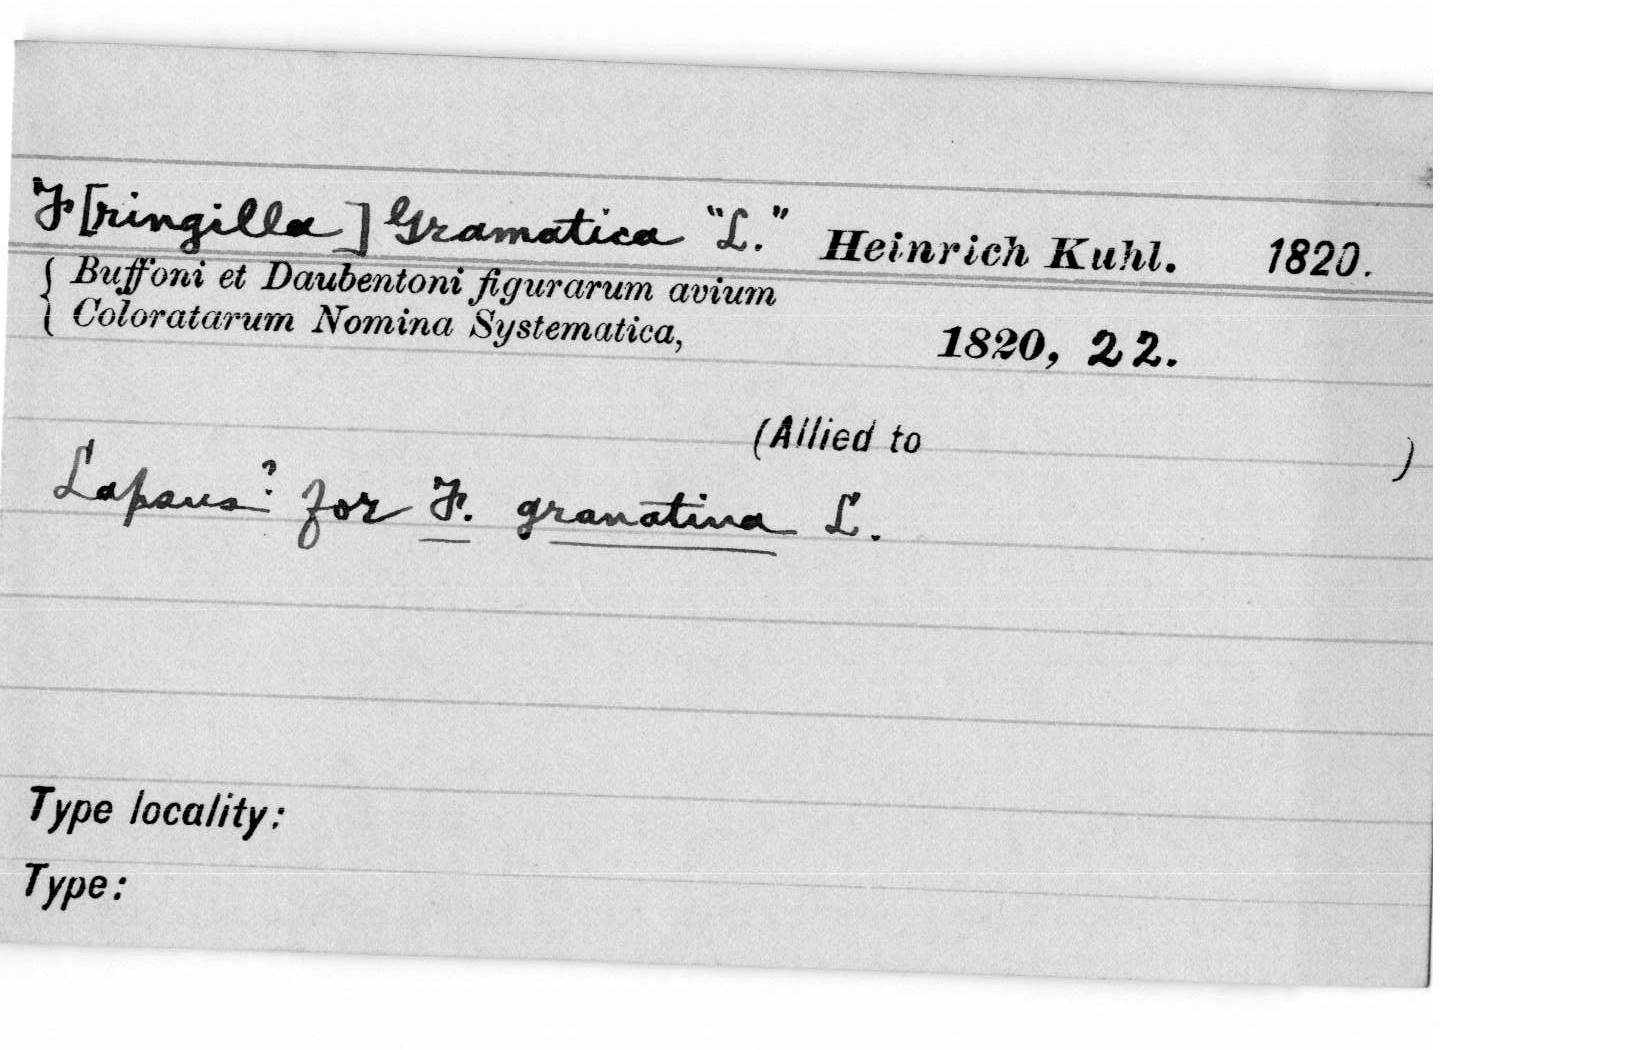 F[ringilla] Gramatica "L." Heinrich Kuhl. 1820.
{ Buffoni et Daubentoni figurarum avium
{ Coloratarum Nomina Systematica, 1820, 22.
(Allied to )
Lapsus? for F. granatina L.
Type locality:
Type: